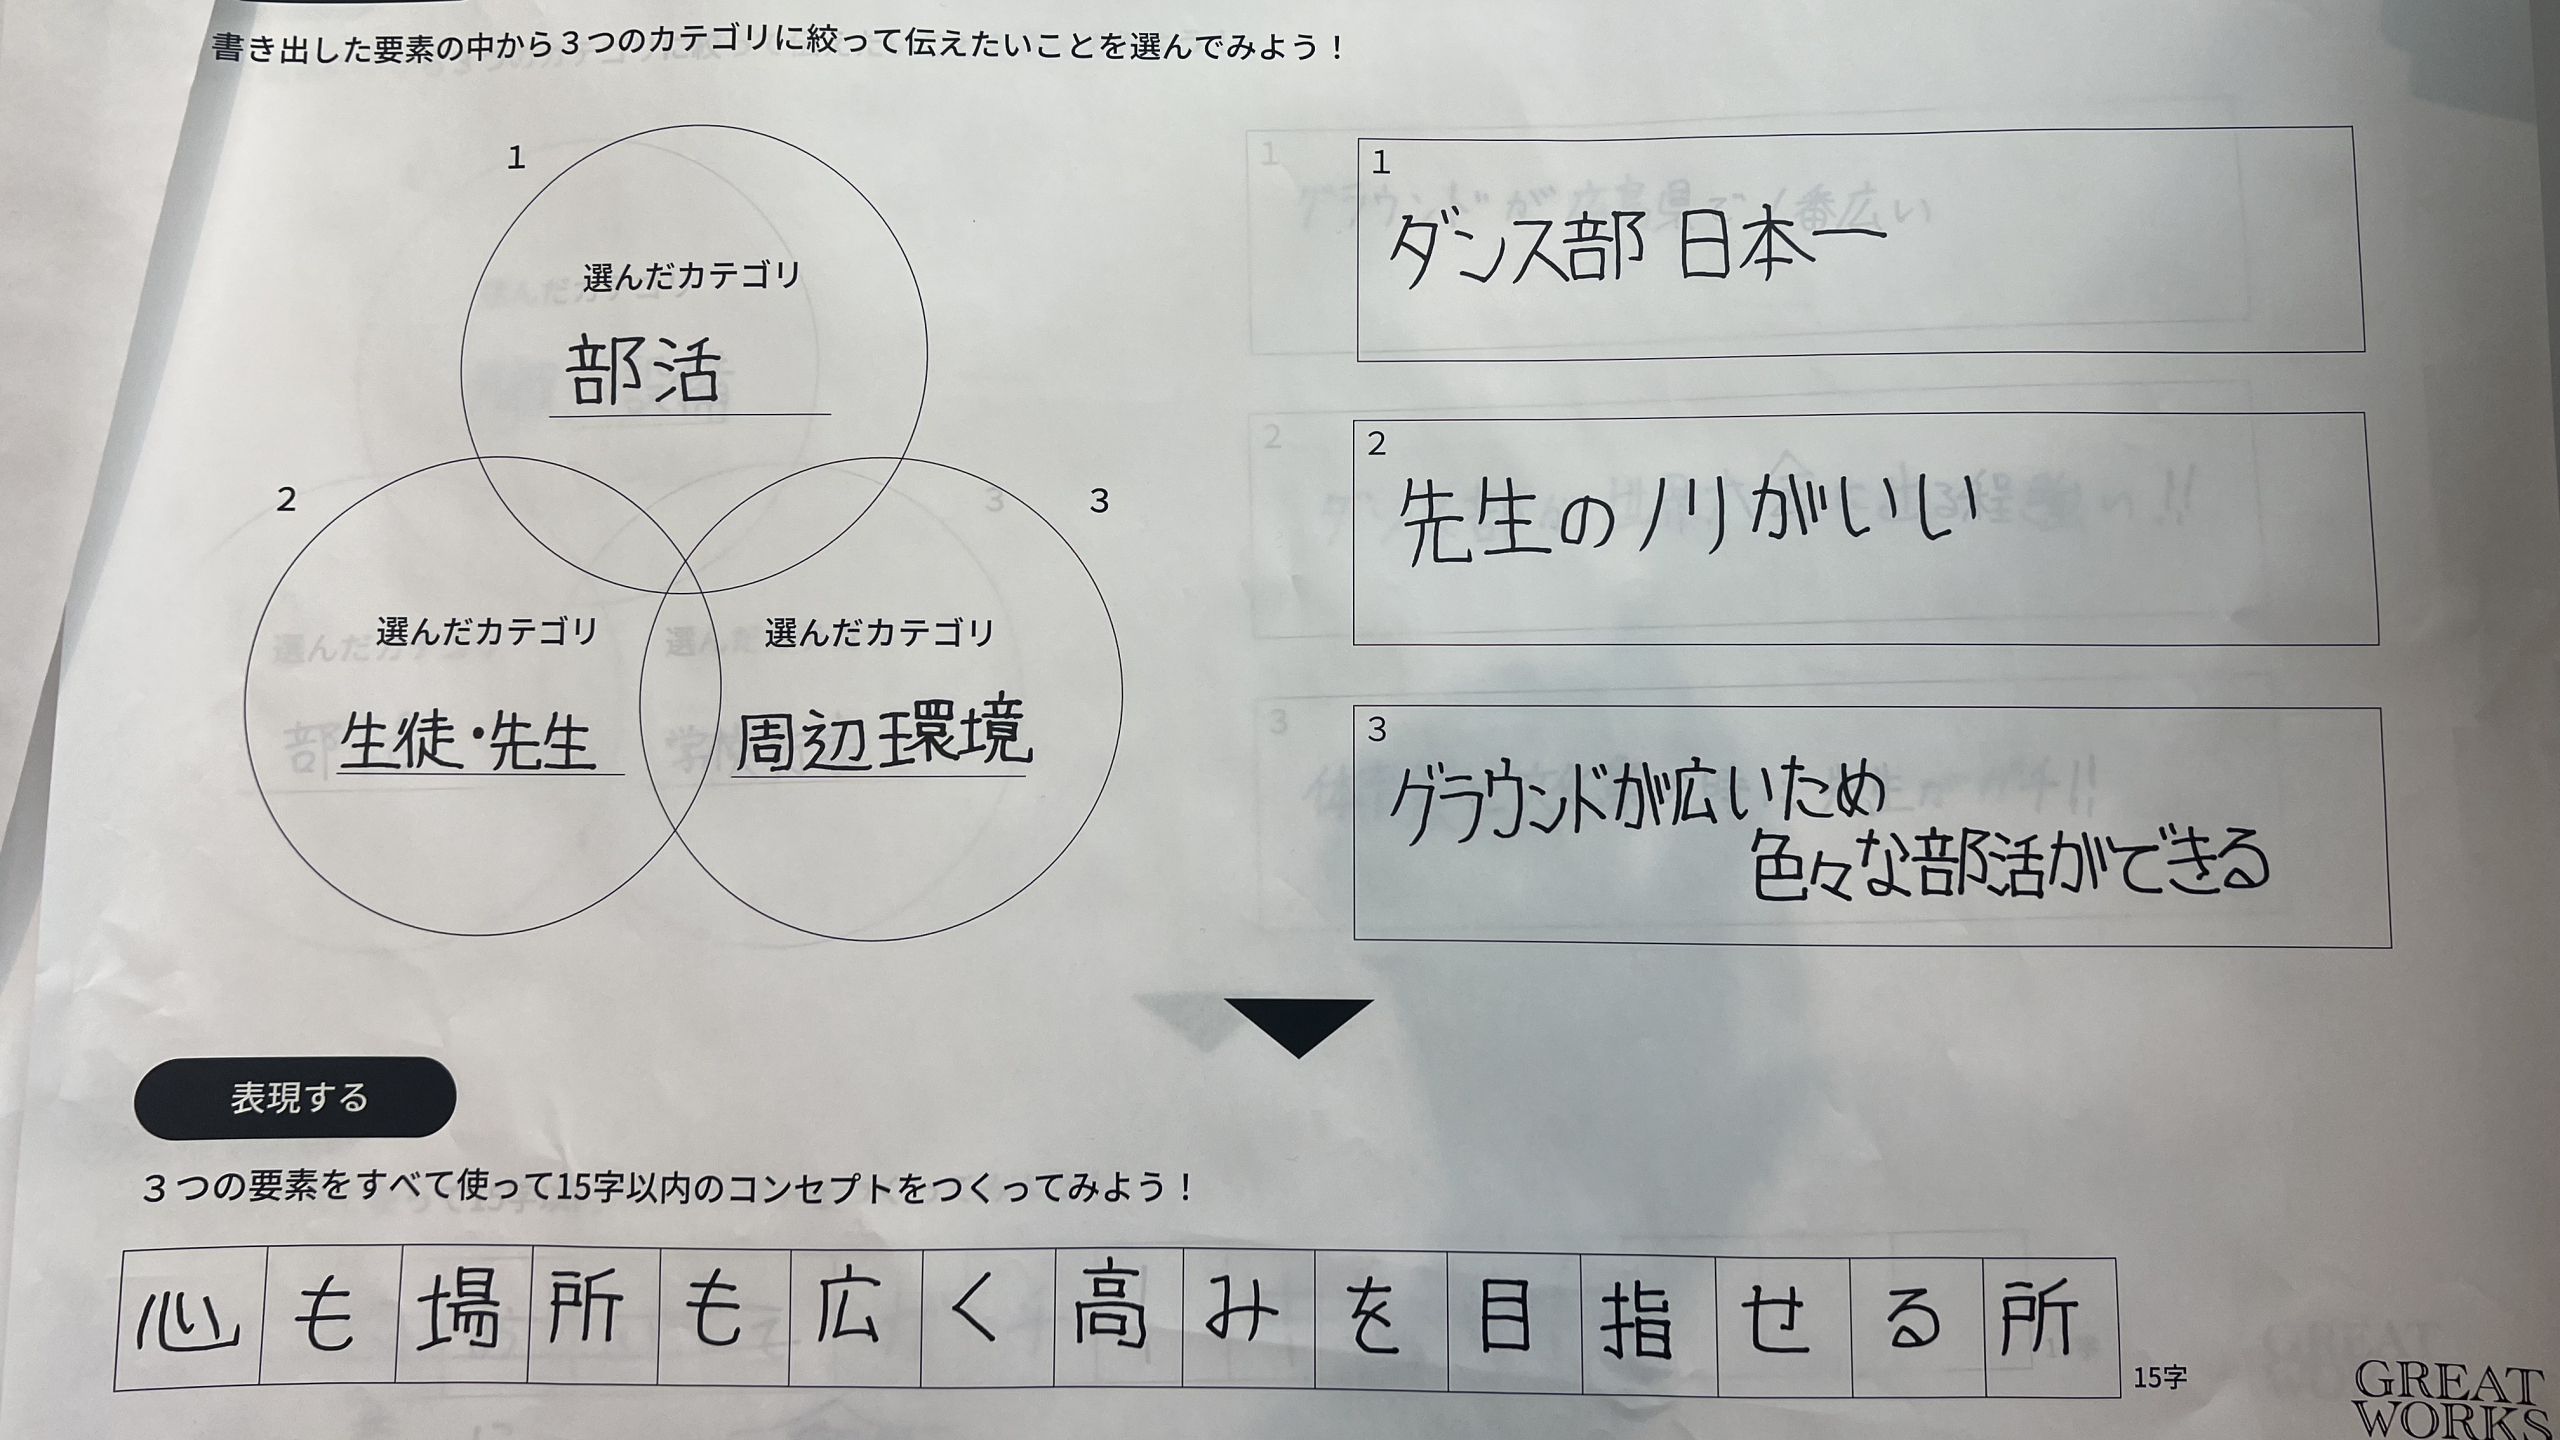 書き出した要素の中から３つのカテゴリに絞って伝えたいことを選んでみよう！
1
選んだカテゴリ
部活
2
選んだカテゴリ
生徒・先生
3
選んだカテゴリ
周辺環境
1
ダンス部 日本一
2
先生のノリがいい
3
グラウンドが広いため
色々な部活ができる
表現する
３つの要素をすべて使って15字以内のコンセプトをつくってみよう！
心も場所も広く高みを目指せる所
15字
GREAT
WORKS